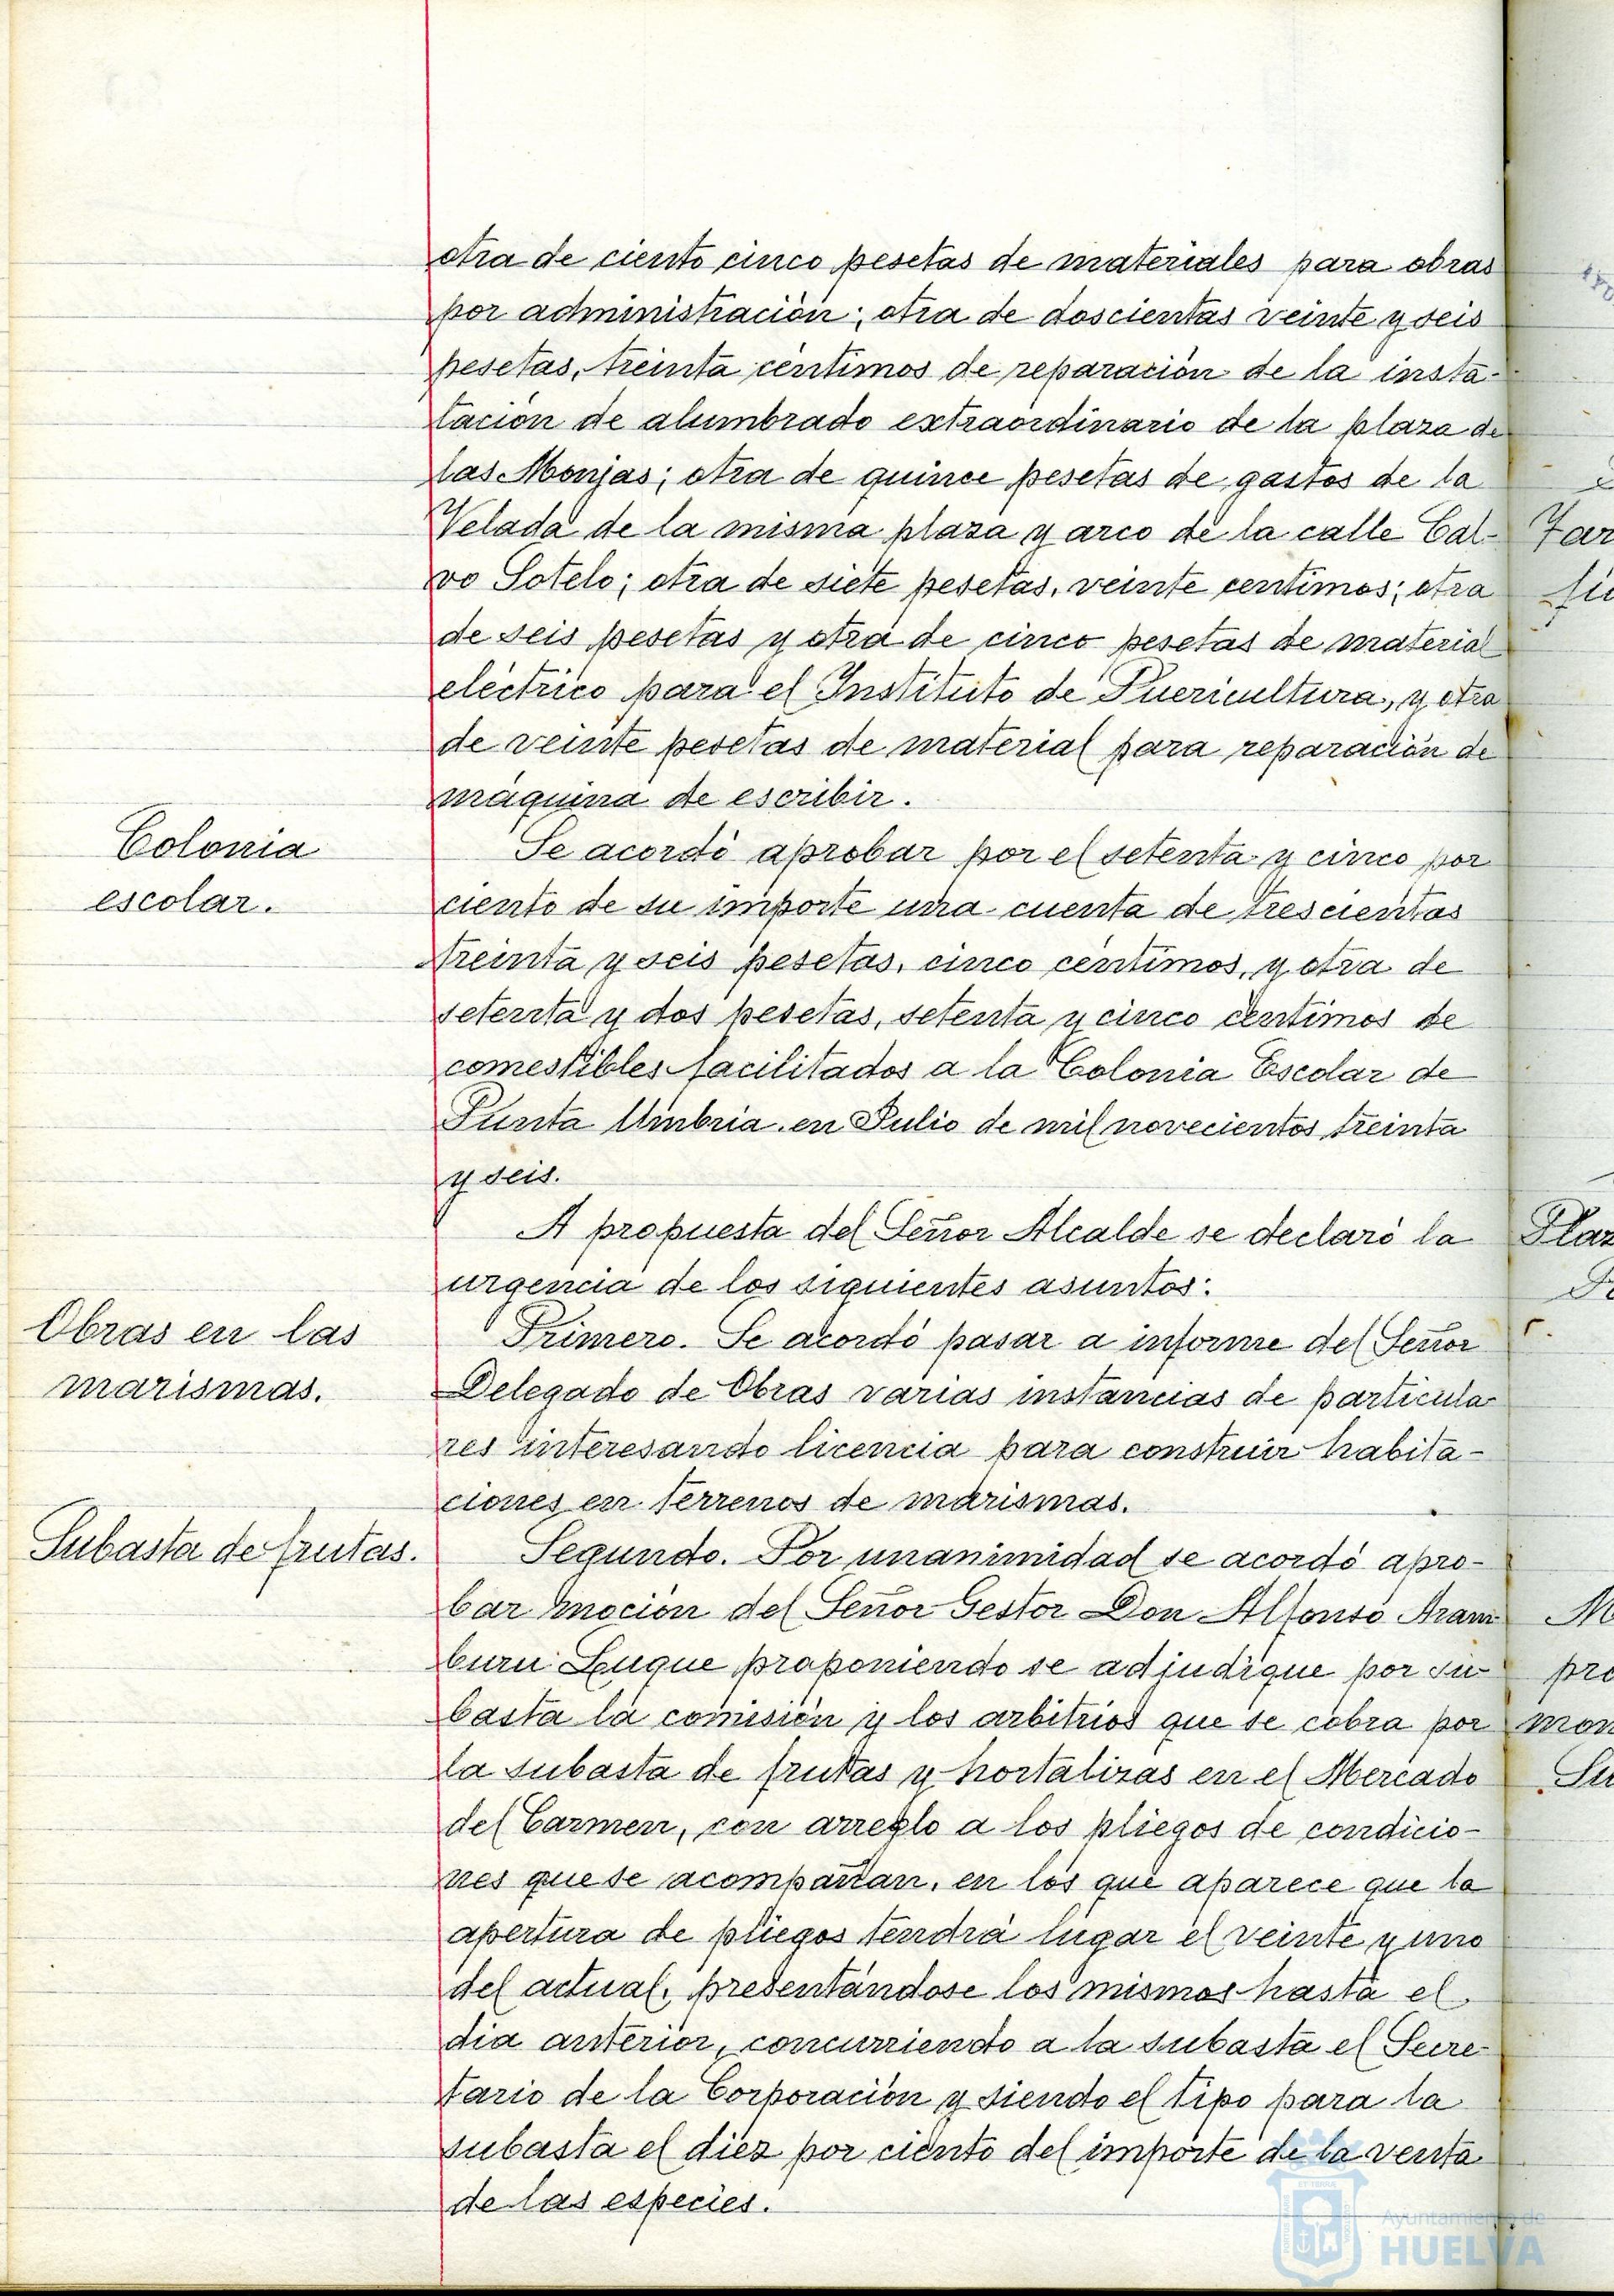 otra de ciento cinco pesetas de materiales para obras
por administración; otra de doscientas veinte y seis
pesetas, treinta céntimos de reparación de la insta-
lación de alumbrado extraordinario de la plaza de
las Monjas; otra de quince pesetas de gastos de la
Velada de la misma plaza y arco de la calle Cal-
vo Sotelo; otra de siete pesetas, veinte centimos; otra
de seis pesetas y otra de cinco pesetas de material
eléctrico para el Instituto de Puericultura, y otra
de veinte pesetas de material para reparación de
máquina de escribir.
Colonia
escolar.
Se acordó aprobar por el setenta y cinco por
ciento de su importe una cuenta de trescientas
treinta y seis pesetas, cinco centimos, y otra de
setenta y dos pesetas, setenta y cinco centimos de
comestibles facilitados a la Colonia Escolar de
Punta Umbria en Julio de mil novecientos treinta
y seis.
A propuesta del Señor Alcalde se declaró la
urgencia de los siguientes asuntos:
Obras en las
marismas.
Primero. Se acordó pasar a informe del Señor
Delegado de Obras varias instancias de particula
res interesando licencia para construir habita-
ciones en terrenos de marismas.
Subasta de frutas.
Segundo. Por unanimidad se acordó apro-
bar moción del Señor Gestor Don Alfonso Aram
buru Luque proponiendo se adjudique por su-
basta la comisión y los arbitrios que se cobra por
la subasta de frutas y hortalizas en el Mercado
del Carmen, con arreglo a los pliegos de condicio-
nes que se acompañan, en los que aparece que la
apertura de pliegos tendrá lugar el veinte y uno
del actual, presentándose los mismos hasta el
dia anterior, concurriendo a la subasta el Secre-
tario de la Corporación y siendo el tipo para la
subasta el diez por ciento del importe de la venta
de las especies.
Ayuntamiento de
HUELVA